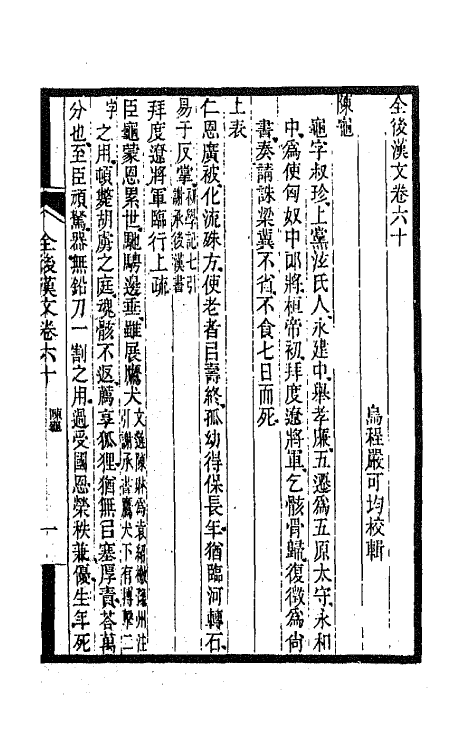 全後漢文卷六十
烏程嚴可均校輯
陳龜
龜字叔珍上黨泫氏人永建中舉孝廉五遷爲五原太守永和
中爲使匈奴中郎將桓帝初拜度遼將軍乞骸骨歸復徵爲尚
書奏請誅梁冀不省不食七日而死
上表
仁恩廣被化流殊方使老者㠯壽終孤幼得保長年猶臨河轉石
易于反掌初學記七引謝承後漢書
拜度遼將軍臨行上疏
臣龜蒙恩累世馳騁邊垂雖展鷹犬文選陳琳爲袁紹檄豫州注引謝承書鷹犬下有搏擊二
字之用頓斃胡虜之庭魂骸不返薦享狐狸猶無㠯塞厚責荅萬
分也至臣頑駑器無鉛刀一割之用過受國恩榮秩兼優生年死
全後漢文卷六十
陳龜
一